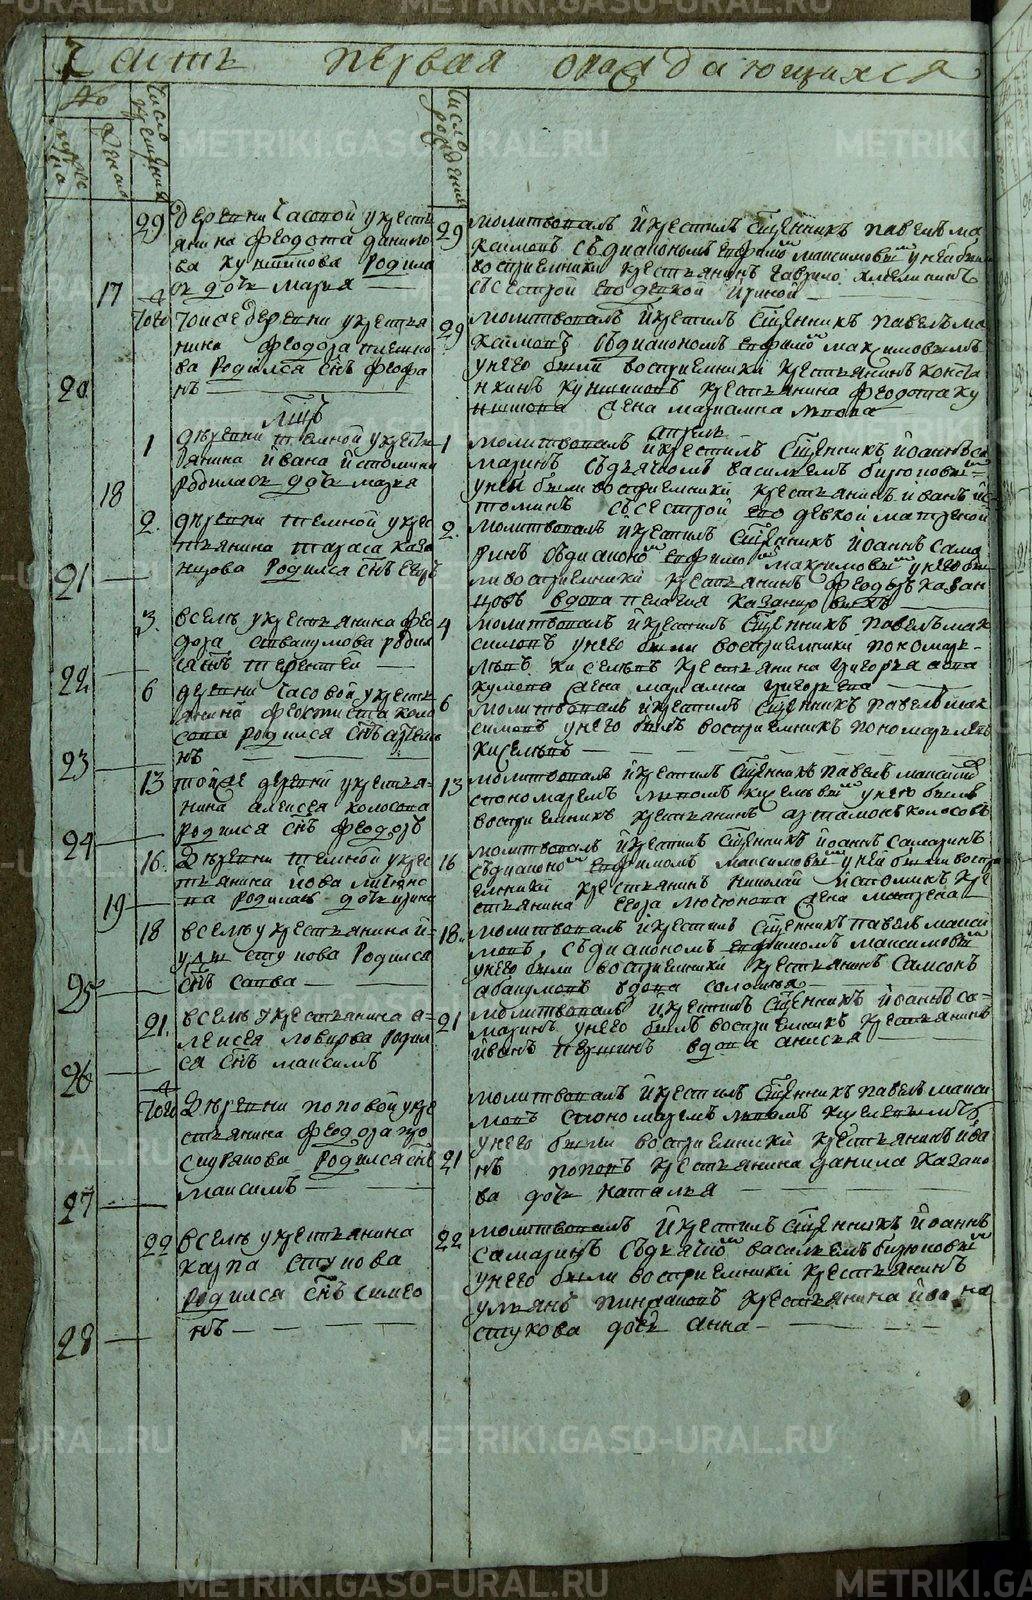 Часть первая ораждающихся
№
число рождения
число крещения
мужеска
женска
29 деревни Часовой у кресть
янина Феодота данило
ва Куншинова родила
17 сь дочь Марья
29 молитвовалъ и крестилъ Священникъ Павелъ ма
ксимовъ съ диакономъ Ефимомъ Максимовымъ у нея были
воспрiемники крестьянинъ Гаврило Хмелининъ
съ сестрой его девкой Ириной
того тойже деревни у крестья
нина Феодора
ва родился сынъ Феофа
20 нъ
29 молитвовалъ и крестилъ Священникъ Павелъ ма
ксимовъ съ диакономъ Ефимомъ Максимовымъ
у него были воспрiемники крестьянинъ Конста
нтинъ Куншиновъ крестьянина Феодота Ку
ншинова жена Марiамна
апрель
1 деревни Темной у кресть
янина Ивана Истомина
18 родилась дочь Марья
1 молитвовалъ и крестилъ Священникъ Иоаннъ Са
маринъ съ дьячкомъ Васильемъ Бирюковымъ
у нея были воспрiемники крестьянинъ Иванъ Ис
томинъ съ сестрой его девкой Матреной
2 деревни Темной у крес
тьянина Тараса Каза
21 нцова родился сынъ Егоръ
2 молитвовалъ и крестилъ Священникъ Иоаннъ Сама
ринъ съ диакономъ Ефимомъ Максимовымъ у него бы
ли воспрiемники крестьянинъ Феодоръ Казан
цовъ вдова Пелагея Казанцовыхъ
3 в селе у крестьянина Фео
дора Аввакумова родил
22 ся сынъ Терентей
4 молитвовалъ и крестилъ Священникъ Павелъ мак
симовъ у него были воспрiемники пономарь
Киселевъ крестьянина Григорья Авва
кумова жена Марiамна Григорьева
6 деревни Часовой у кресть
янина Феоктиста Коло
сова родился сынъ Артемо
23 нъ
6 молитвовалъ и крестилъ Священникъ Павелъ мак
симовъ у него былъ воспрiемникъ пономарь
Киселевъ
13 тойже деревни у крестья
нина Алексея Колосова
24 родился сынъ Феодоръ
13 молитвовалъ и крестилъ Священникъ Павелъ максимов
с пономаремъ Киселевымъ у него былъ
воспрiемникъ крестьянинъ Артамонъ Колосовъ
16 деревни Темной у крес
тьянина Иова
19 родилась дочь Ирина
16 молитвовалъ и крестилъ Священникъ Иоаннъ Самаринъ
съ диакономъ Ефимомъ Максимовымъ у нея были воспрi
емники крестьянинъ Николай Истоминъ кре
стьянина Егора жена Матрена
18 в селе у крестьянина И
Стукова родился
25 сынъ Савва
18 молитвовалъ и крестилъ Священникъ Павелъ макси
мовъ съ диакономъ Ефимомъ Максимовымъ
у него были воспрiемники крестьянинъ Самсонъ
Абакумовъ вдова Соломья
21 в селе у крестьянина А
лексея родил
26 ся сынъ Максимъ
21 молитвовалъ и крестилъ Священникъ Иоаннъ Са
маринъ у него былъ воспрiемникъ крестьянинъ
Иванъ вдова Анисья
того деревни Поповой у кре
стьянина Феодора
родился сынъ
27 Максимъ
21 молитвовалъ и крестилъ Священникъ Павелъ макси
мовъ с пономаремъ
у него были воспрiемники крестьянинъ Ива
нъ Поповъ крестьянина Данила Казанц
ва дочь Наталья
22 в селе у крестьянина
Карпа Стукова
родился сынъ Симео
28 нъ
22 молитвовалъ и крестилъ Священникъ Иоаннъ
Самаринъ съ дьячкомъ Васильемъ Бирюковымъ
у него были воспрiемники крестьянинъ
Ульянъ крестьянина Ивана
Стукова дочь Анна
METRIKI.GASO-URAL.RU